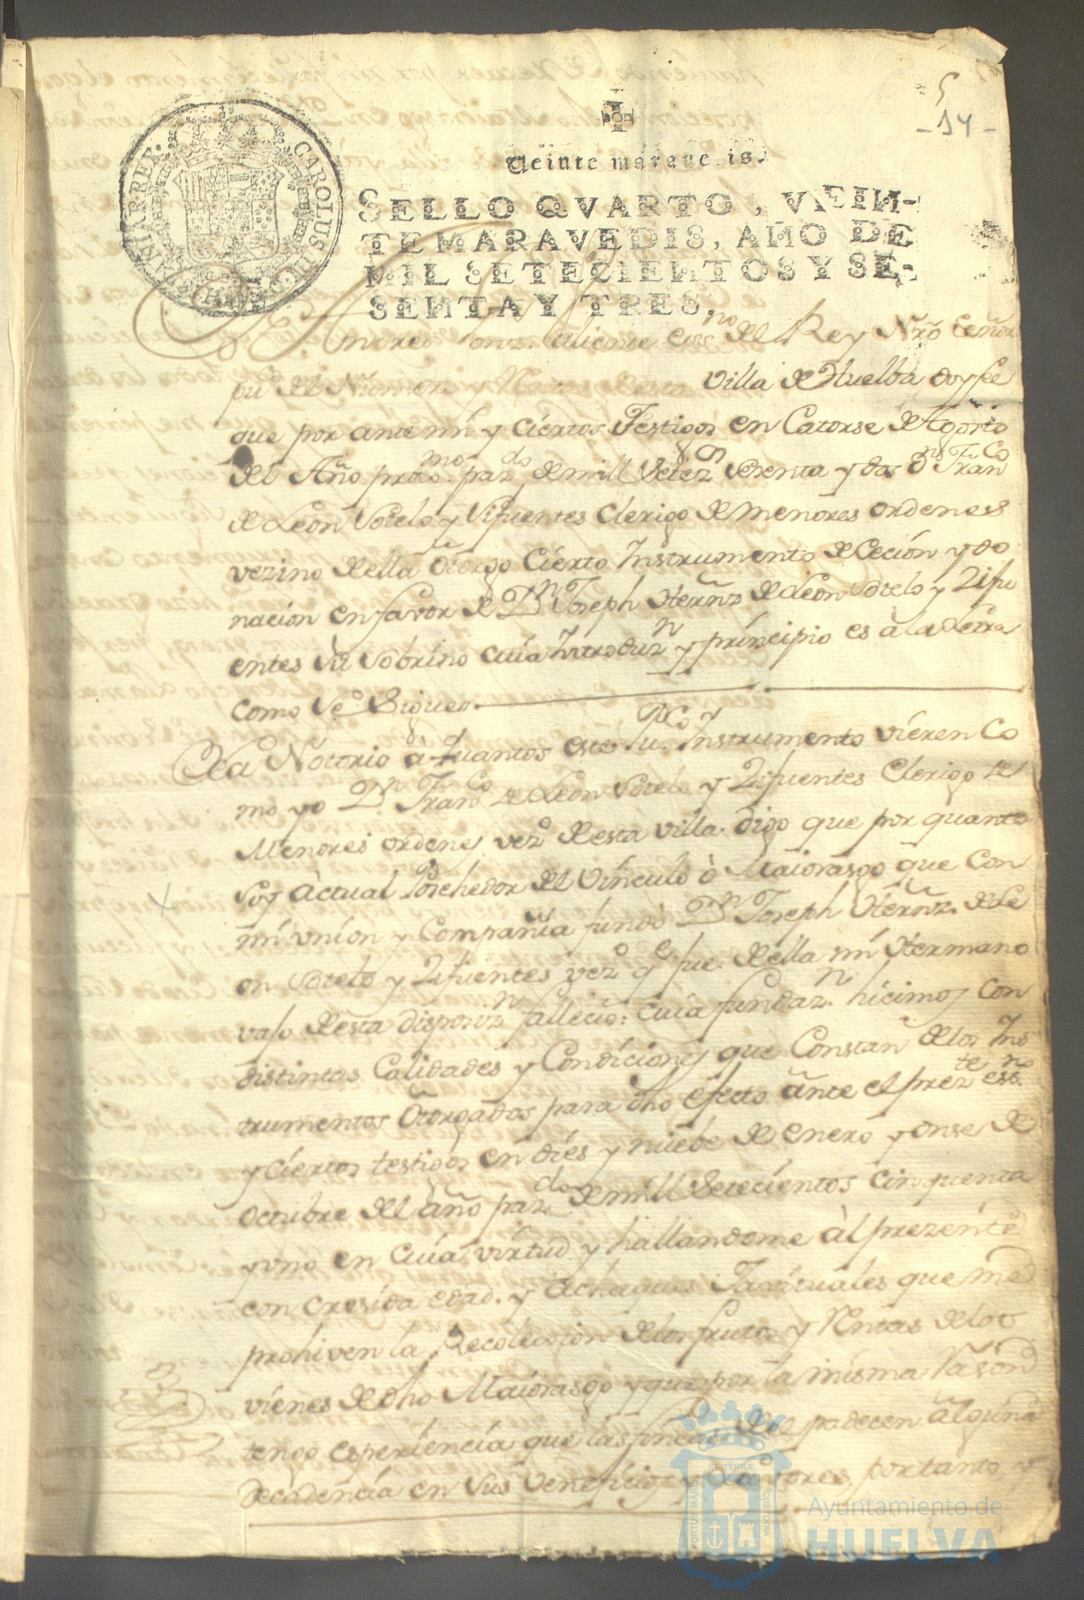 5
-14-
CAROLUS III D. G. HISPANIAR. REX.
Veinte maravedis.
SELLO QVARTO, VEIN-
TE MARAVEDIS, AÑO DE
MIL SETECIENTOS Y SE-
SENTA Y TRES.
Andres ess.no del Rey Nrõ Señor
pu del Numero villa de Huelba doy fee
que por ante mi y ciertos Testigos en Catorse de Agosto
del Año proo.mo paz.do de mill Setez.os Sesenta y dos Dn Franco
de Leon Sotelo y Sifuentes Clerigo de menores ordenes
vezino de ella Otorgo Cierto Instrumento de Cecion y do
nacion en favor de Dn Joseph Herñz de Leon Sotelo y Zifu
entes su Sobrino cuia Introduz.n y principio es a la Letra
como se Sigue
Sea Notorio a quantos este pu.co Instrumento vieren Co
mo yo Dn Franco de Leon Sotelo y Zifuentes Clerigo de
Menores ordenes vezo de esta villa digo que por quanto
soy actual Posehedor del Vinculo ò Maiorasgo que con
mi union y Compañia fundò Dn Joseph Herñz de Le
on Sotelo y Zifuentes vezo qe fue de ella mi Hermano
vaxo de esta disposiz.n fallecio: cuia fundaz.n hicimos con
distintas Calidades y Condiciones que Constan de los Ins
trumentos Otorgados para dho efecto ante el prez.te ess.no
y ciertos testigos en dies y nuebe de enero y onse de
octubre del año paz.do de mill Setecientos cinquenta
y uno en cuia virtud y hallandome àl prezente
con cresida edad y achaques Havituales que me
prohiven la Recoleccion de los frutos y Rentas de los
vienes de dho Maiorasgo y que por la misma Rason
tengo esperiencia que las fincas padecen alguna
decadencia en sus veneficios y lavores, por tanto
PORTUS MARIS ET TERRAE CUSTODIA
Ayuntamiento de
HUELVA